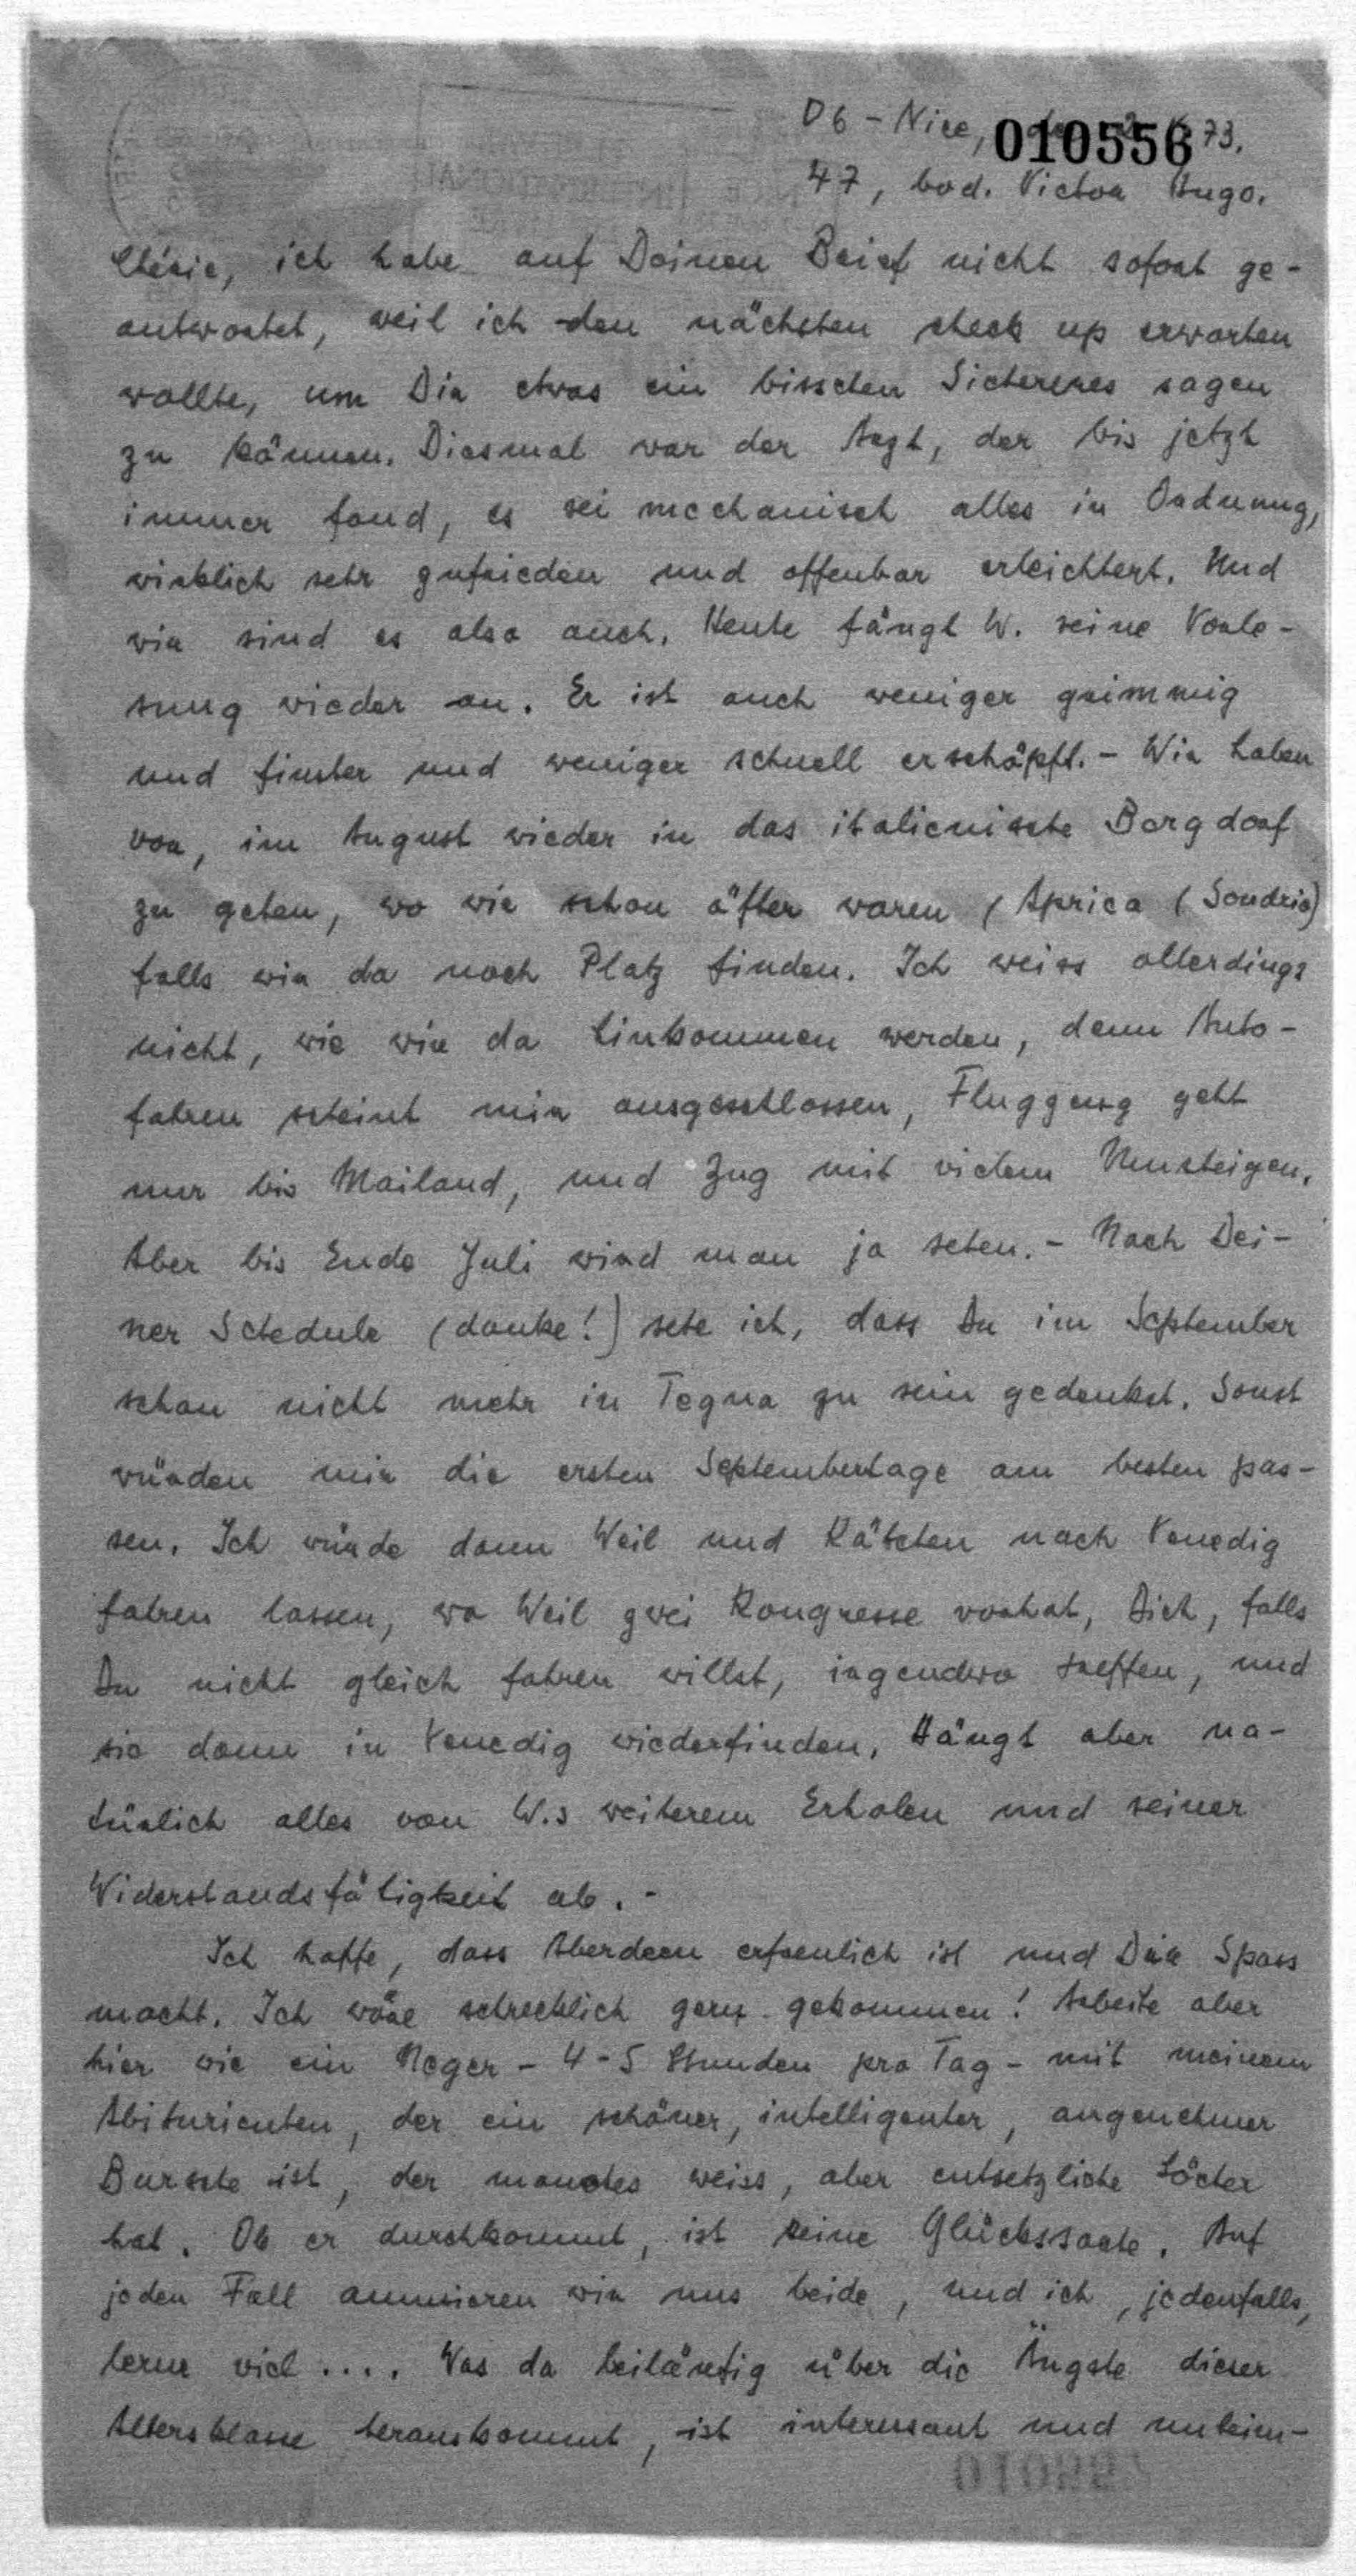 06 - Nice, 73.
010556
47, bvd. Victor Hugo.
Chérie, ich habe auf Deinen Brief nicht sofort ge-
antwortet, weil ich den nächsten check up erwarten
wollte, um Dir etwas ein bisschen Sichereres sagen
zu können. Diesmal war der Arzt, der bis jetzt
immer fand, es sei mechanisch alles in Ordnung,
wirklich sehr zufrieden und offenbar erleichtert. Und
wir sind es also auch. Heute fängt W. seine Vorle-
sung wieder an. Er ist auch weniger grimmig
und finster und weniger schnell erschöpft. - Wir haben
vor, im August wieder in das italienische Bergdorf
zu gehen, wo wir schon öfter waren (Aprica (Sondrio)
falls wir da noch Platz finden. Ich weiss allerdings
nicht, wie wir da hinkommen werden, denn Auto-
fahren scheint mir ausgeschlossen, Flugzeug geht
nur bis Mailand, und Zug mit vielem Umsteigen.
Aber bis Ende Juli wird man ja sehen. - Nach Dei-
ner Schedule (danke!) sehe ich, dass Du im September
schon nicht mehr in Tegna zu sein gedenkst. Sonst
würden mir die ersten Septembertage am besten pas-
sen. Ich würde dann Weil und Kätchen nach Venedig
fahren lassen, wo Weil zwei Kongresse vorhat, Dich, falls
Du nicht gleich fahren willst, irgendwo treffen, und
sie dann in Venedig wiederfinden. Hängt aber na-
türlich alles von W.s weiterem Erholen und seiner
Widerstandsfähigkeit ab. -
Ich hoffe, dass Aberdeen erfreulich ist und Dir Spass
macht. Ich wäre schrecklich gern gekommen! Arbeite aber
hier wie ein Neger - 4-5 Stunden pro Tag - mit meinem
Abiturienten, der ein schöner, intelligenter, angenehmer
Bursche ist, der manches weiss, aber entsetzliche Löcher
hat. Ob er durchkommt, ist reine Glückssache. Auf
jeden Fall amüsieren wir uns beide, und ich, jedenfalls,
lerne viel .... Was da beiläufig über die Ängste dieser
Altersklasse herauskommt, ist interessant und unheim-